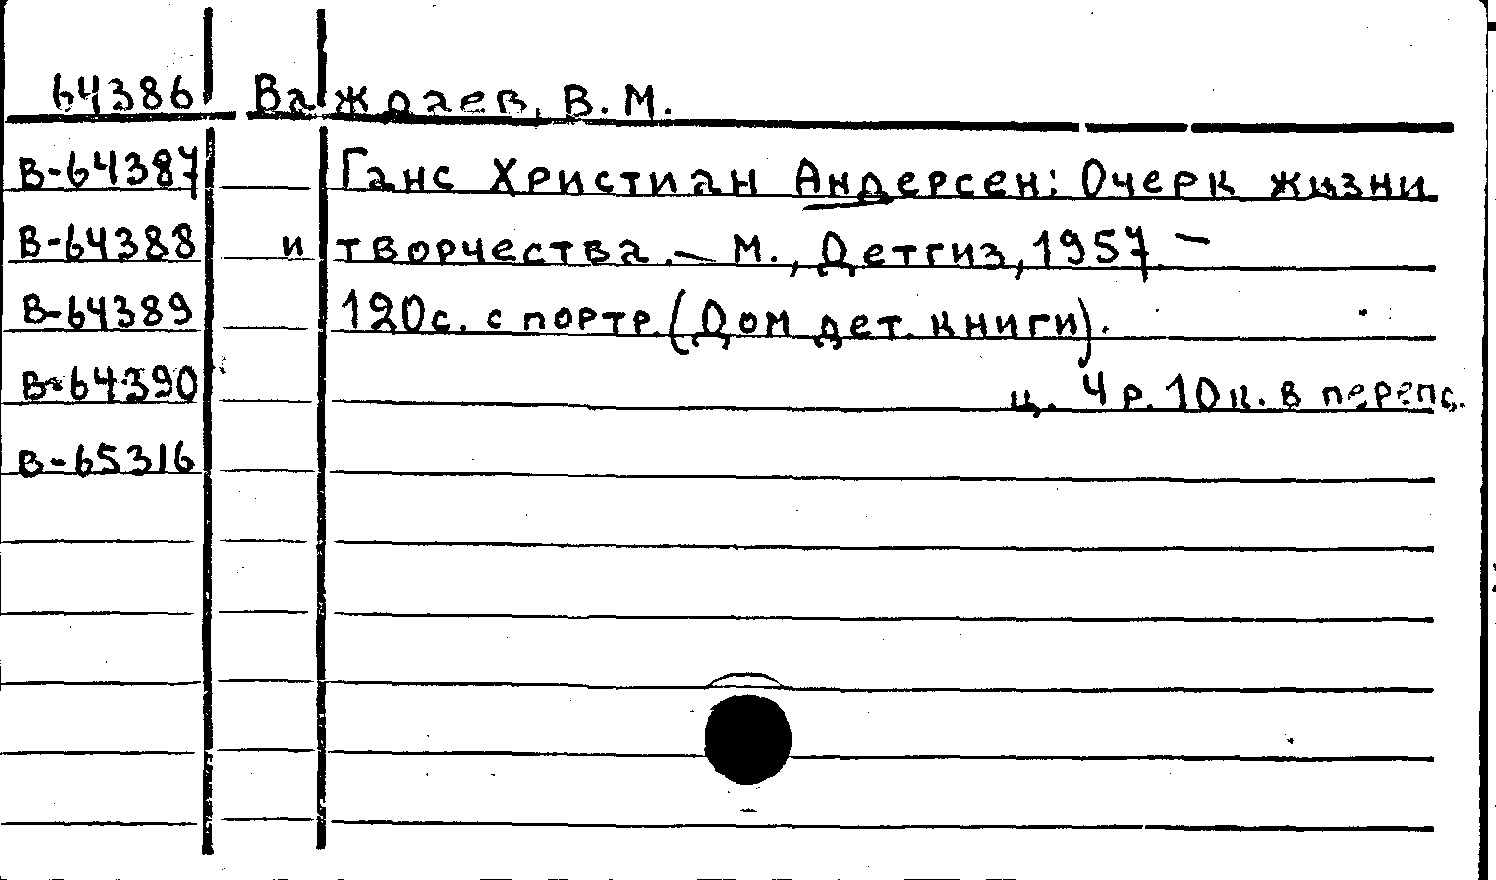 64386 Важдаев, В. М.
В-64387 Ганс Христиан Андерсен: Очерк жизни
В-64388 и творчества. — М., Детгиз, 1957 —
В-64389 120с. с портр. (Дом дет. книги).
В-64390 ц. 4 р. 10 к. в переп.
В-65316